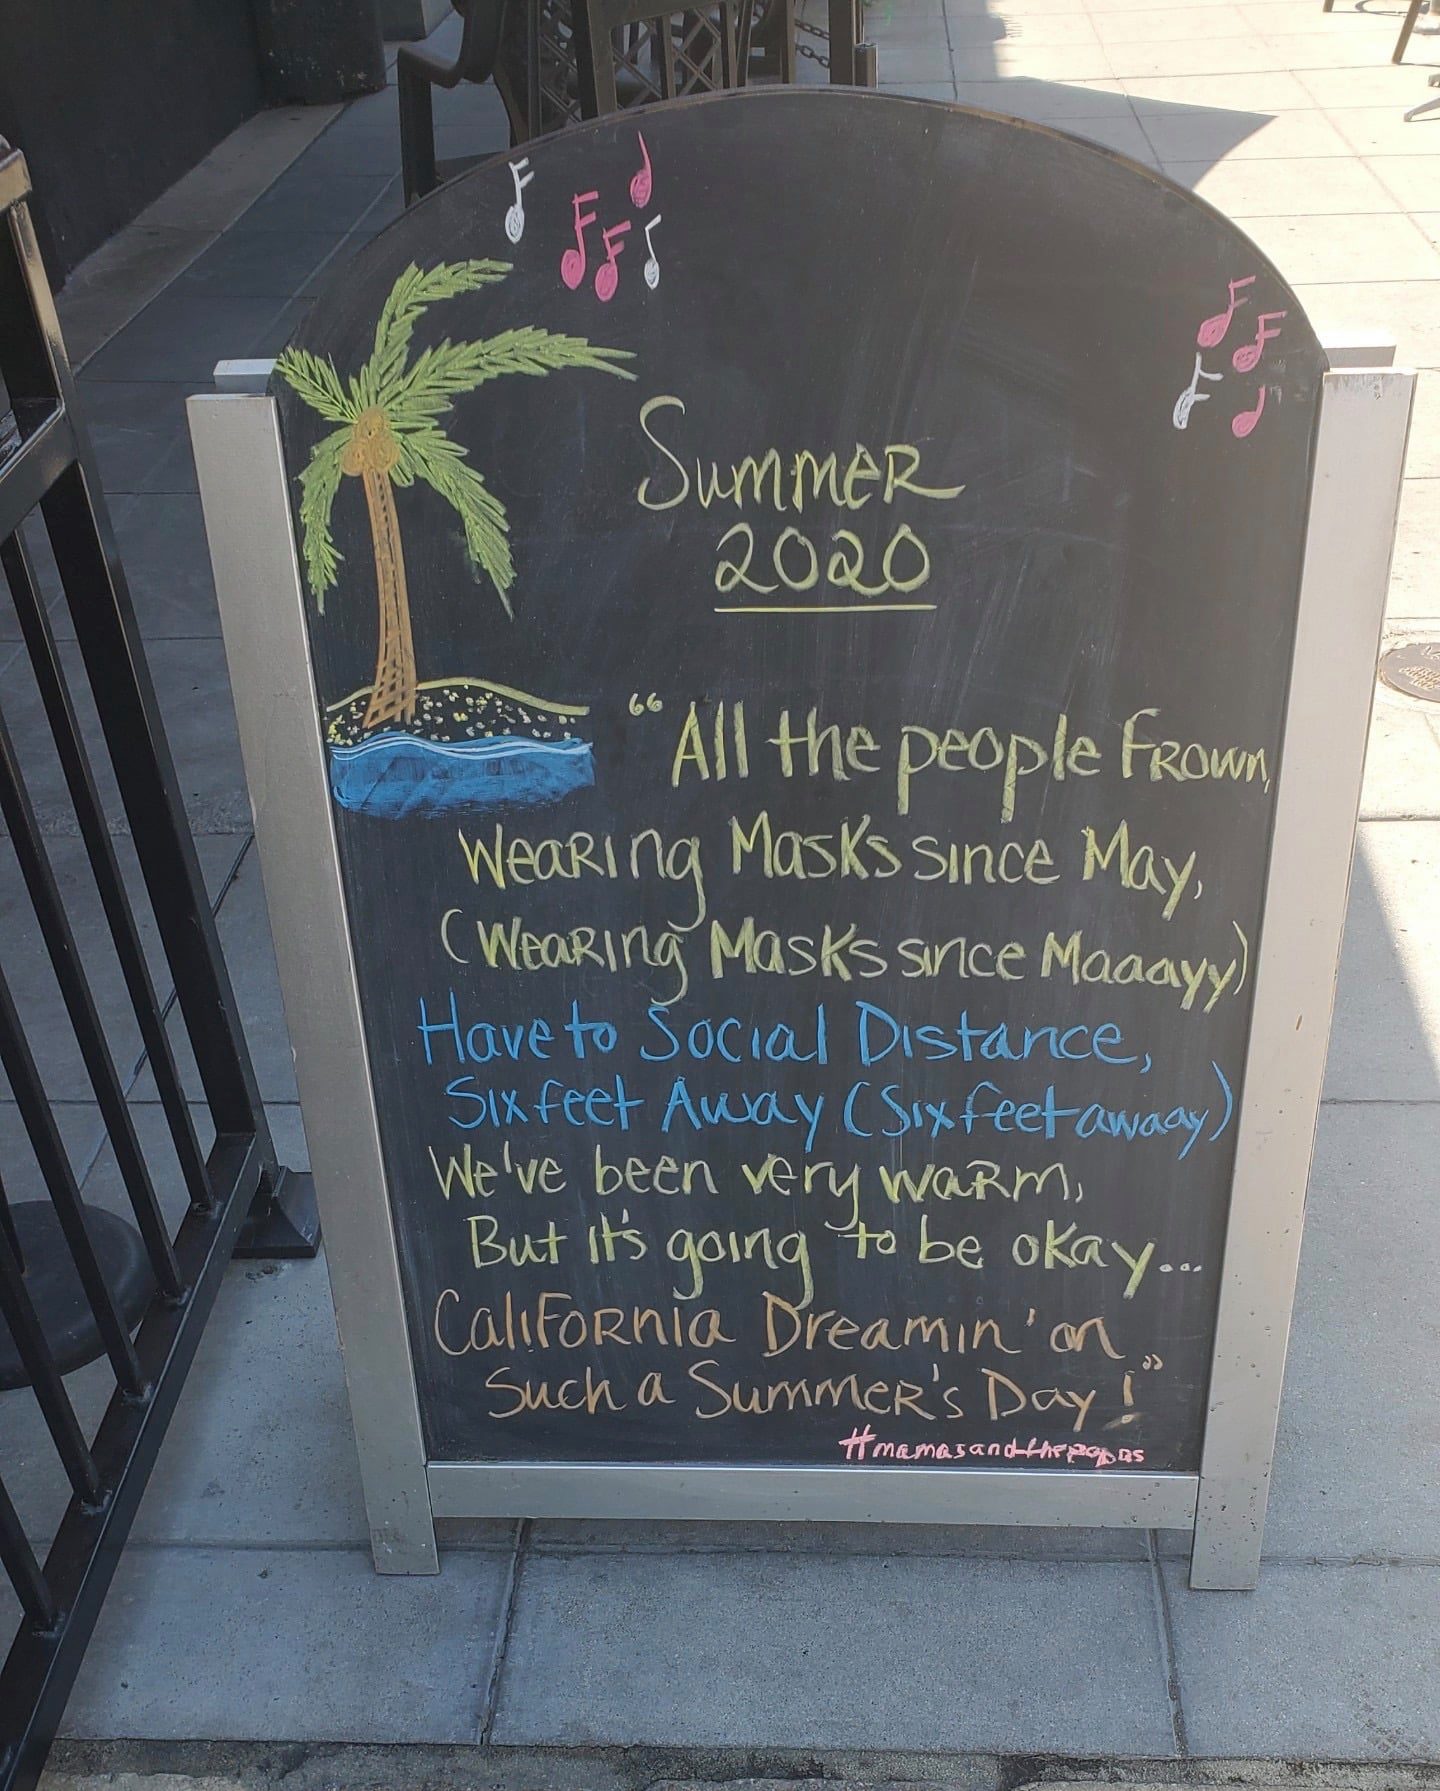 Summer
2020
"All the people frown,
Wearing Masks since May,
(Wearing Masks since Maaayy)
Have to Social Distance,
Six feet Away (Six feet awaay)
We've been very warm,
But it's going to be okay...
California Dreamin' on
Such a Summer's Day!"
#mamasandthepapas